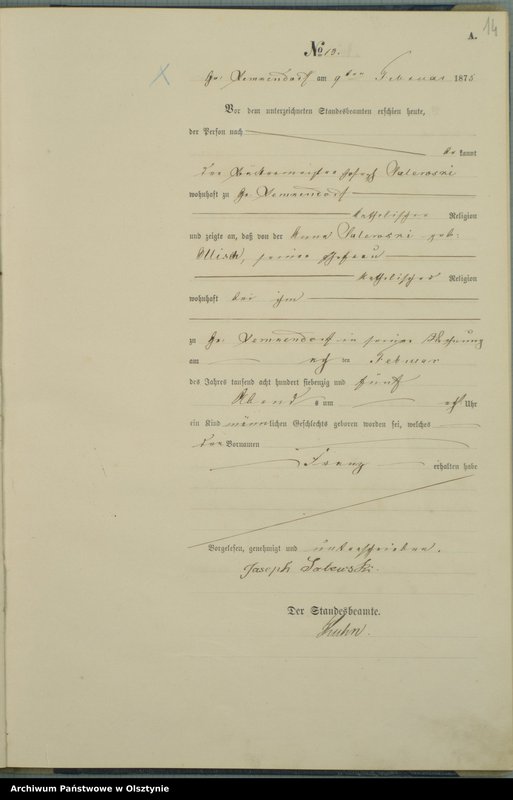 14
A.
No 10.
Gr. Lemkendorf am 9ten Februar 1875
Vor dem unterzeichneten Standesbeamten erschien heute,
der Person nach
bekannt
der Bäckermeister Joseph Salewski
wohnhaft zu Gr. Lemkendorf
katholischer Religion
und zeigte an, daß von der Anna Salewski geb.
seiner Ehefrau
katholischer Religion
wohnhaft bei ihm
zu Gr. Lemkendorf in seiner Wohnung
am ten Februar
des Jahres tausend acht hundert siebenzig und fünf
Abends um Uhr
ein Kind männlichen Geschlechts geboren worden sei, welches
den Vornamen
Franz erhalten habe
Vorgelesen, genehmigt und unterschrieben.
Joseph Salewski.
Der Standesbeamte.
Kuhn.
Archiwum Państwowe w Olsztynie